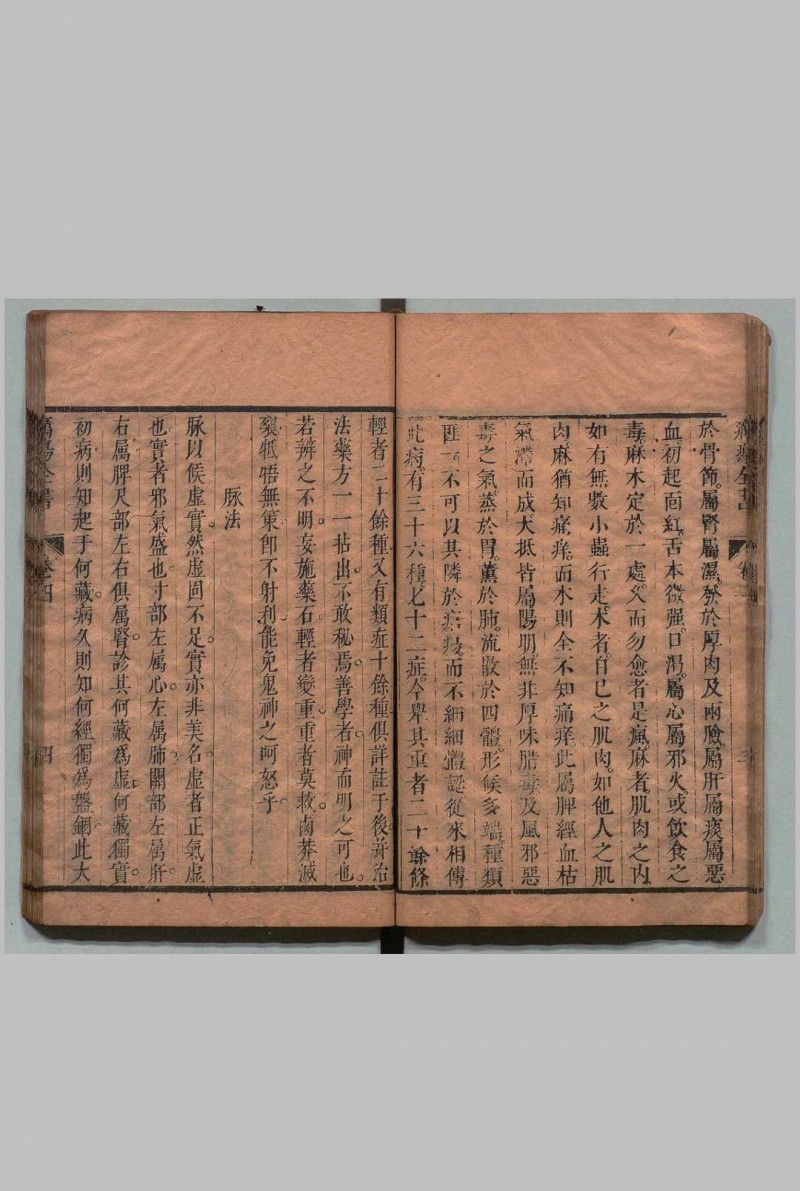 於骨節屬腎屬濕發於厚肉及兩臉屬肝屬痰屬惡
血初起面紅舌本微强口渴屬心屬邪火或飲食之
毒麻木定於一處久而勿愈者是瘋麻者肌肉之内
如有無數小蟲行走木者自己之肌肉如他人之肌
肉麻猶知痛痒而木則全不知痛痒此屬脾經血枯
氣滯而成大抵皆屬陽明無非厚味脂毒及風邪惡
毒之氣蒸於胃薰於肺流散於四體形候多端種類
匪一不可以其隣於而不細細體認從來相傳
此病有三十六種七十二症今舉其重者二十餘條
輕者二十餘種又有類症十餘種俱詳註于後并治
法藥方一一拈出不敢秘焉善學者神而明之可也
若辨之不明妄施藥石輕者變重重者莫救鹵莽滅
裂牴牾無策卽不射利能免鬼神之呵怒乎
脉法
脉以候虚實然虚固不足實亦非美名虚者正氣虚
也實者邪氣盛也寸部左属心左属肺關部左属肝
右属脾尺部左右俱属腎診其何藏爲虚何藏獨實
初病則知起于何藏病久則知何經獨爲盤錮此大
全書 卷四
四